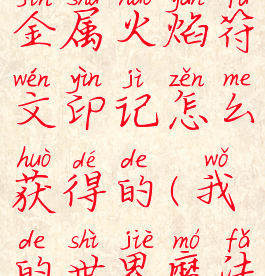 jīn shǔ huǒ yàn fú
金属火焰符
wén yìn jì zěn me
文印记怎么
huò dé de wǒ
获得的(我
de shì jiè mó fǎ
的世界魔法